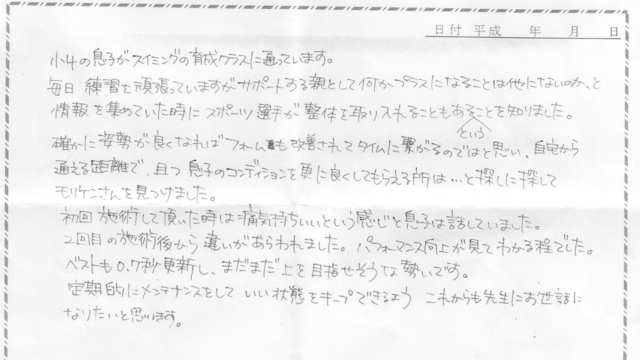 日付 平成 年 月 日
小4の息子がスイミングの育成クラスに通っています。
毎日 練習を頑張っていますがサポートする親として何かプラスになることは他にないのか、と
情報を集めていた時に スポーツ選手が 整体を取り入れることもあることを知りました。
という
確かに姿勢が良くなればフォームも改善されてタイムに繋がるのではと思い、自宅から
通える距離で、且つ 息子のコンディションを更に良くしてもらえる所は…と探しに探して
モリケンさんを見つけました。
初回 施術して頂いた時は 痛気持ちいいという感じと息子は話していました。
2回目の施術後から 違いがあらわれました。パフォーマンス向上が見てわかる程でした。
ベストも0.7秒更新し、まだまだ上を目指せそうな勢いです。
定期的にメンテナンスをして いい状態をキープできるよう これからも先生にお世話に
なりたいと思います。